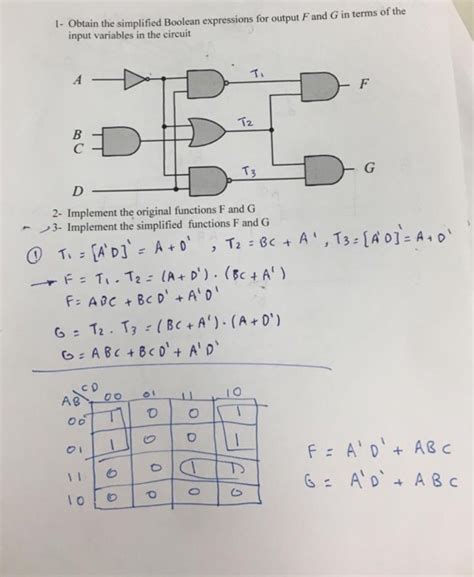 1- Obtain the simplified Boolean expressions for output F and G in terms of the
input variables in the circuit
A
T₁
F
B
C
T2
T3
G
D
2- Implement the original functions F and G
3- Implement the simplified functions F and G
① T₁ = [A'D]' = A + D' , T₂ = BC + A' , T3 = [A'D]' = A + D'
→ F = T₁ . T₂ = (A + D') . (BC + A')
F = ABC + BCD' + A'D'
G = T₂ . T3 = (BC + A') . (A + D')
G = ABC + BCD' + A'D'
CD
AB 00 01 11 10
00 1 0 0 1
01 1 0 0 1
11 0 0 1 1
10 0 0 0 0
F = A'D' + ABC
G = A'D' + ABC